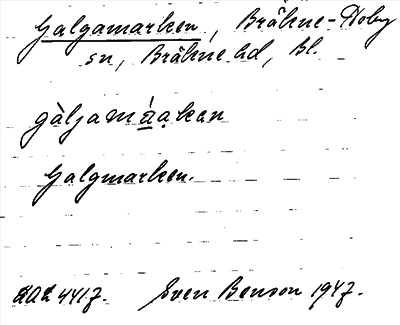 Galgamarken, Bräkne-Hoby
sn, Bräkne hd, Bl.
gàljamáạrkan
Galgmarken.
LAL 4417. Sven Benson 1947.